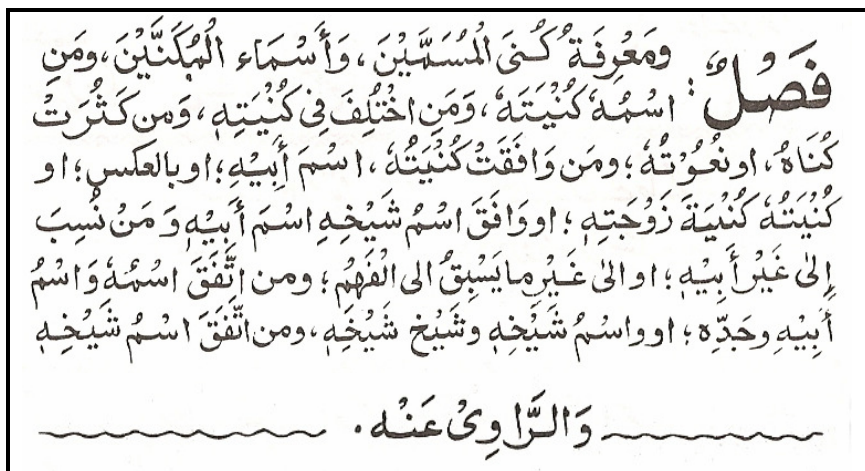 فَصْلٌ: وَمَعْرِفَةُ كُنَى الْمُسَمَّيْنَ، وَأَسْمَاءِ الْمُكَنَّيْنَ، وَمَنِ
اسْمُهٗ كُنْيَتَهٗ، وَمَنِ اخْتُلِفَ فِی كُنْيَتِهٖ، وَمَن كَثُرَتْ
كُنَاهُ، او نُعُوْتُهٗ؛ ومَن وَافَقَتْ كُنْيَتُهٗ، اسْمَ أَبِيْهِ؛ او بالعكسِ؛ او
كُنْيَتُهٗ كُنْيَةَ زَوْجَتِهٖ؛ او وَافَقَ اسْمُ شَيْخِهٖ اسْمَ أَبِيْهِ وَمَنْ نُسِبَ
إِلىٰ غَيْرِ أَبِيْهِ؛ او الیٰ غَيْرِ مايَسْبِقُ الی الْفَهْمِ؛ ومن اتَّفَقَ اسْمُهٗ وَاسْمُ
أَبِيْهِ وجَدِّهٖ؛ او واسْمُ شَيْخِهٖ وشَيْخِ شَيْخِهٖ، ومن اتَّفَقَ اسْمُ شَيْخِهٖ
وَالرَّاوِیْ عَنْهُ.